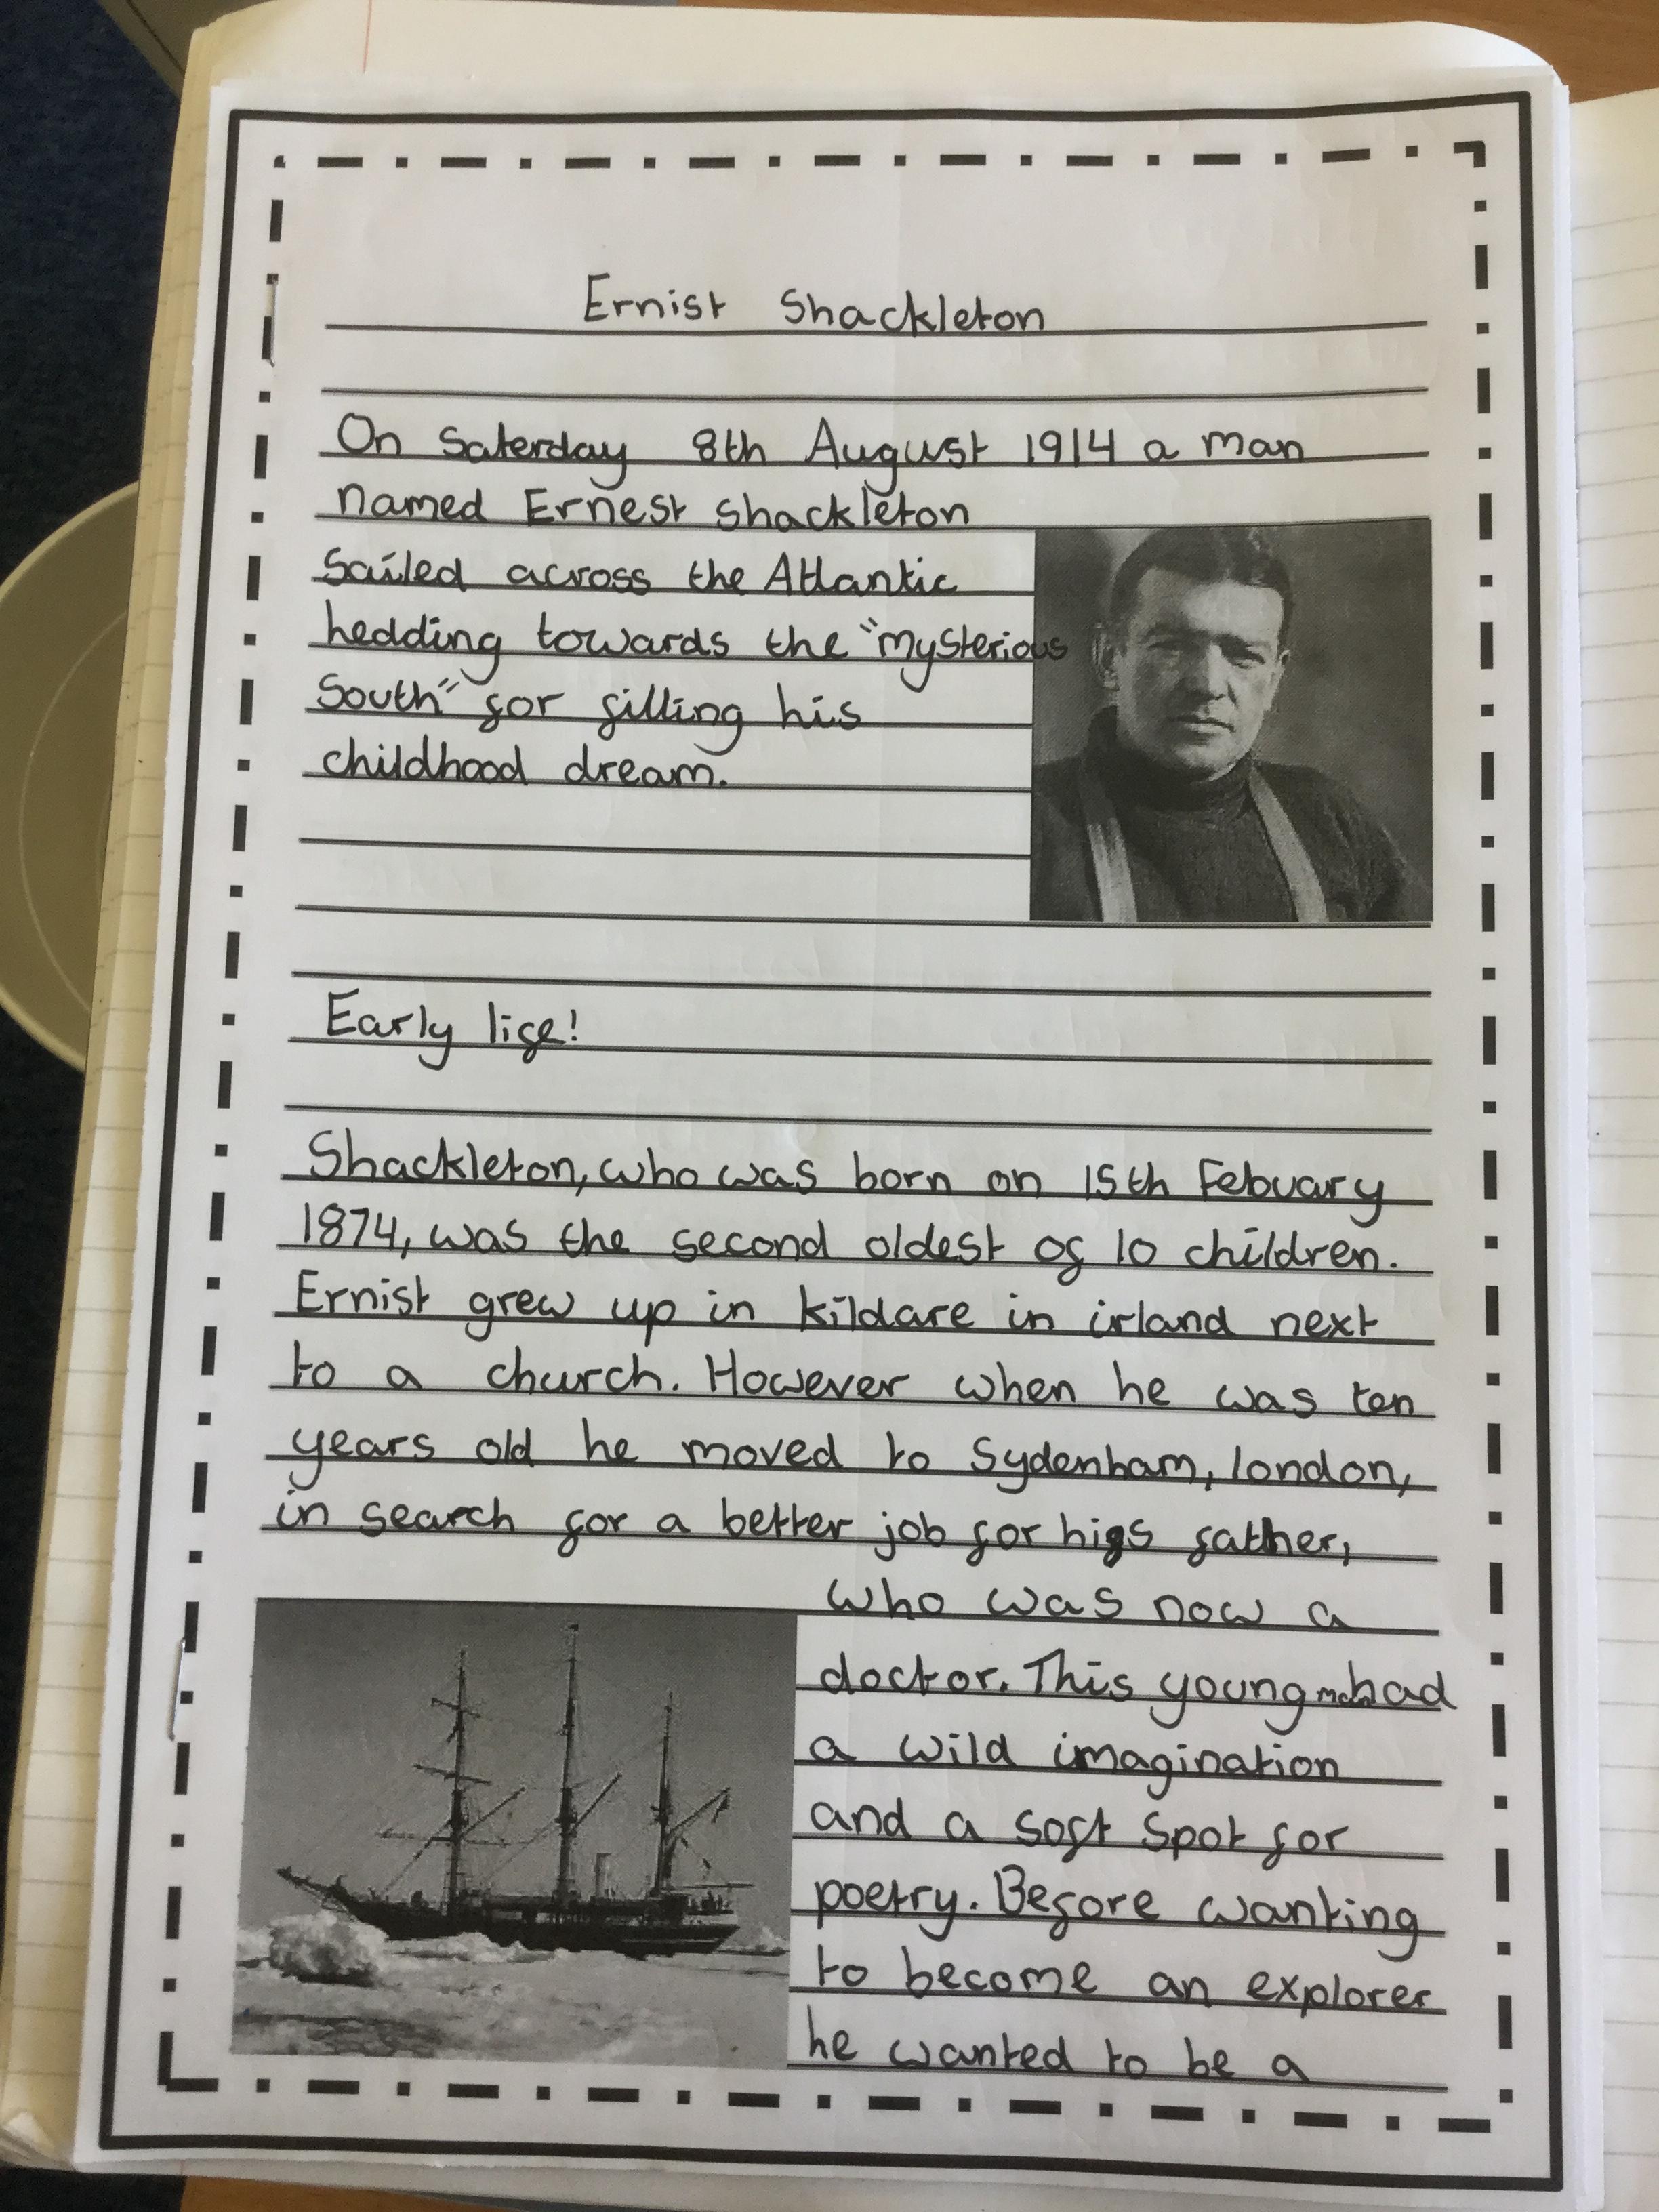 Ernist Shackleton
On Saterday 8th August 1914 a man
named Ernest Shackleton
Sailed across the Atlantic
hedding towards the "mysterious
South" for filling his
childhood dream.
Early life!
Shackleton, who was born on 15th Febuary
1874, was the second oldest of 10 children.
Ernist grew up in kildare in irland next
to a church. However when he was ten
years old he moved to Sydenham, london,
in search for a better job for his father,
who was now a
doctor. This young man had
a wild imagination
and a soft spot for
poetry. Before wanting
to become an explorer
he wanted to be a